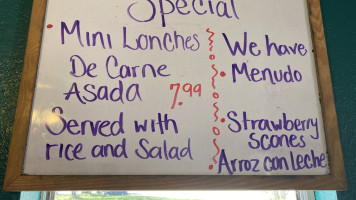 Special
Mini Lonches
De Carne
Asada 7.99
Served with
rice and Salad
We have
Menudo
Strawberry
scones
Arroz con leche